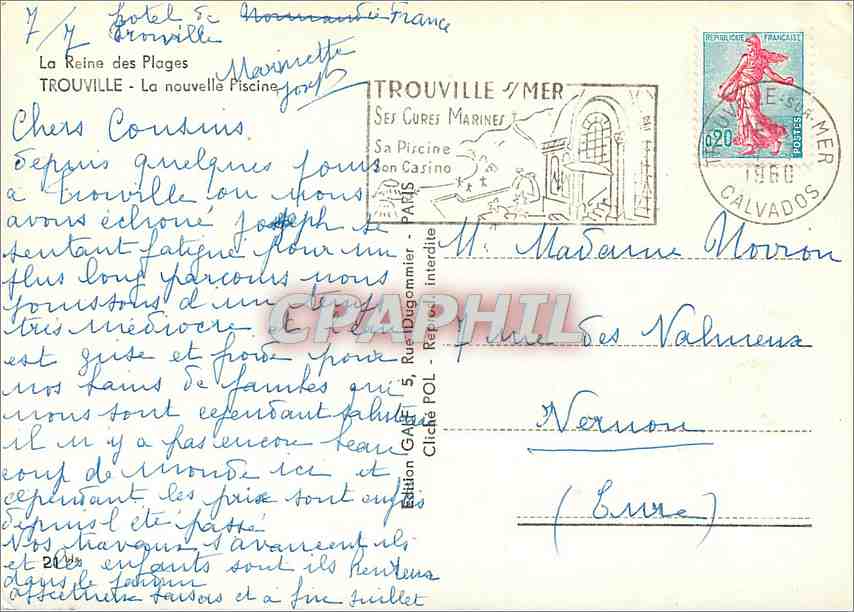 7/7 hotel de Normandie France
Trouville
La Reine des Plages
TROUVILLE - La nouvelle Piscine
Marinette
Joseph
Chers Cousins
depuis quelques jours
a Trouville ou nous
avons échoué joseph se
sentant fatigué pour un
plus long parcours nous
jouissons d un temps
très médiocre et l eau
est grise et froide pour
nos bains de jambes qui
nous sont cependant salutaires
il n y a pas encore beau
coup de monde ici et
cependant les prix sont
depuis l été passé
Nos travaux s avancent ils
et les enfants sont ils heureux
dans le jardin
a fin juillet
21
TROUVILLE S/ MER
SES CURES MARINES
Sa Piscine
Son Casino
REPUBLIQUE FRANÇAISE
0,20
POSTES
TROUVILLE-SUR-MER
1960
CALVADOS
Edition GABY, 5, Rue Dugommier - PARIS
Cliché POL - Reprod. interdite
CPAPHIL
M. Madame Novion
7 rue des Valmeux
Vernon
(Eure)